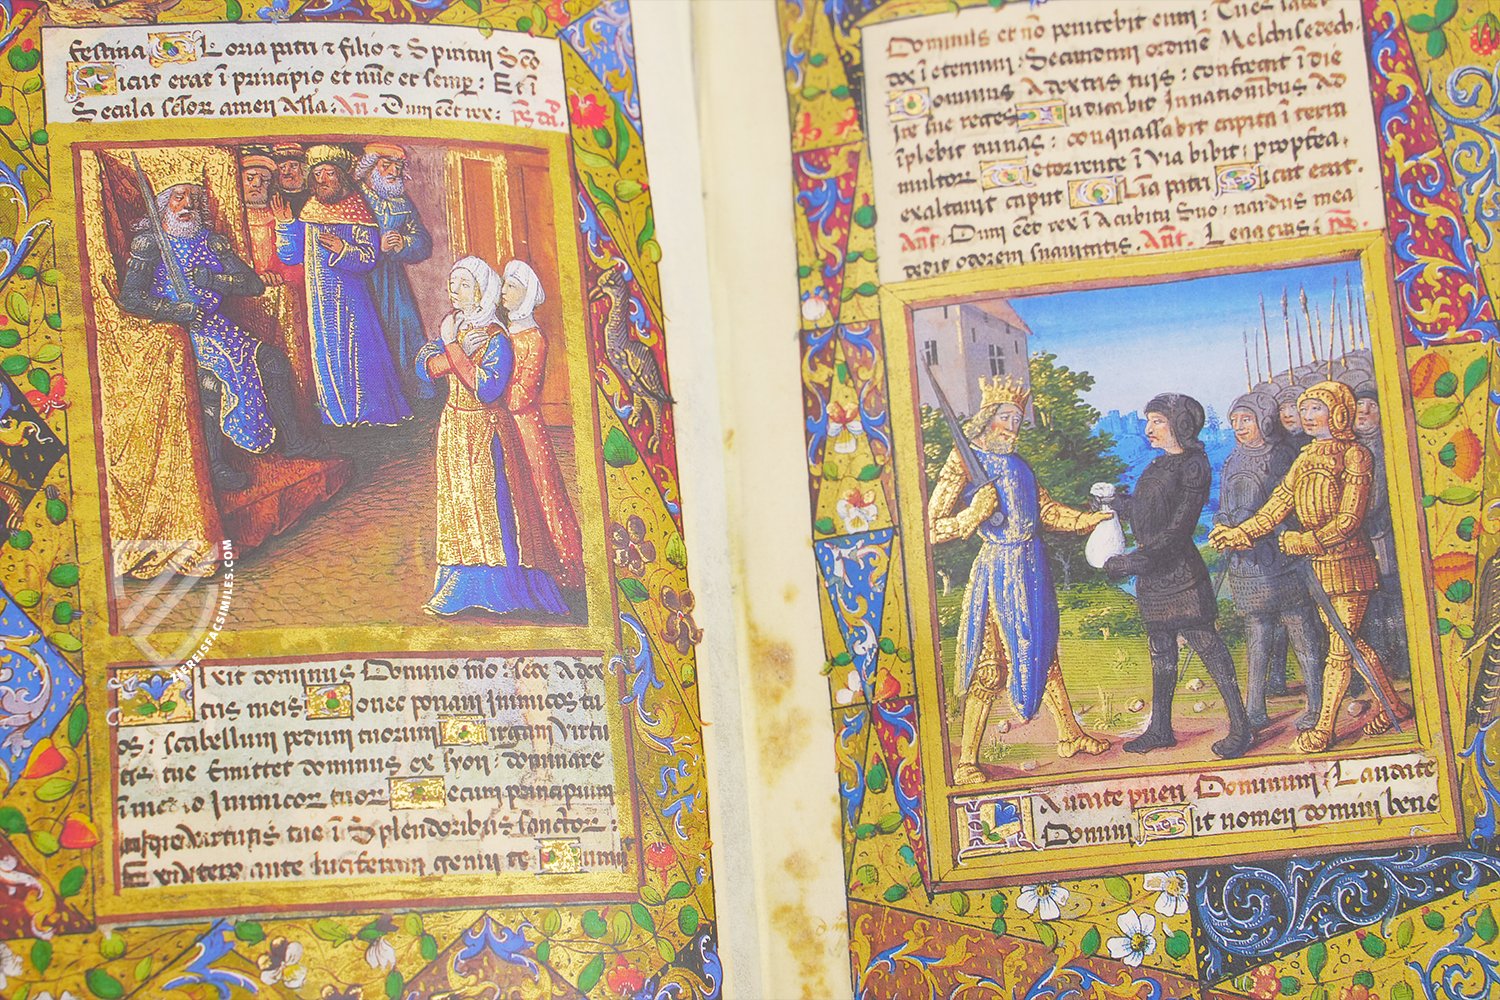 festina Gloria patri & filio & Spiritui Sc̃o
Sicut erat ĩ principio et nũc et semp̱: Et ĩ
Secula sclor̃ amen Alla: Añ. Dum eẽt rex: p̃s dd̃.
Dixit dominus Domino mo: sede Adex
tris meis Donec ponam Inimicos tu
os: scabellum pedum tuorum Virgam Virtu
tis tue Emittet dominus ex syon: dominare
ĩ medio Inimicor tuor Tecum principium
Virtutis tue ĩ Splendoribus sanctor:
Ex utero ante luciferum genui te Jurauit
Dominus et nõ penitebit eum: Tu es
ĩ eternum: Secundum ordinẽ Melchisedech.
Dominus Adextris tuis: confregit ĩ die
ire sue reges Iudicabit Innationibus Ad
ĩplebit ruinas: conquassabit capita ĩ terra
multor De torrente ĩ via bibit: proptea.
exaltauit caput Glĩa patri Sicut erat.
Ant. Dum eẽt rex ĩ Acubitu Suo: nardus mea
dedit odorem suauitatis. Ant. Leua eius: p̃s.
Laudate pueri Dominum: Laudate
nomen Domini Sit nomen domini bene
ZIEREISFACSIMILES.COM